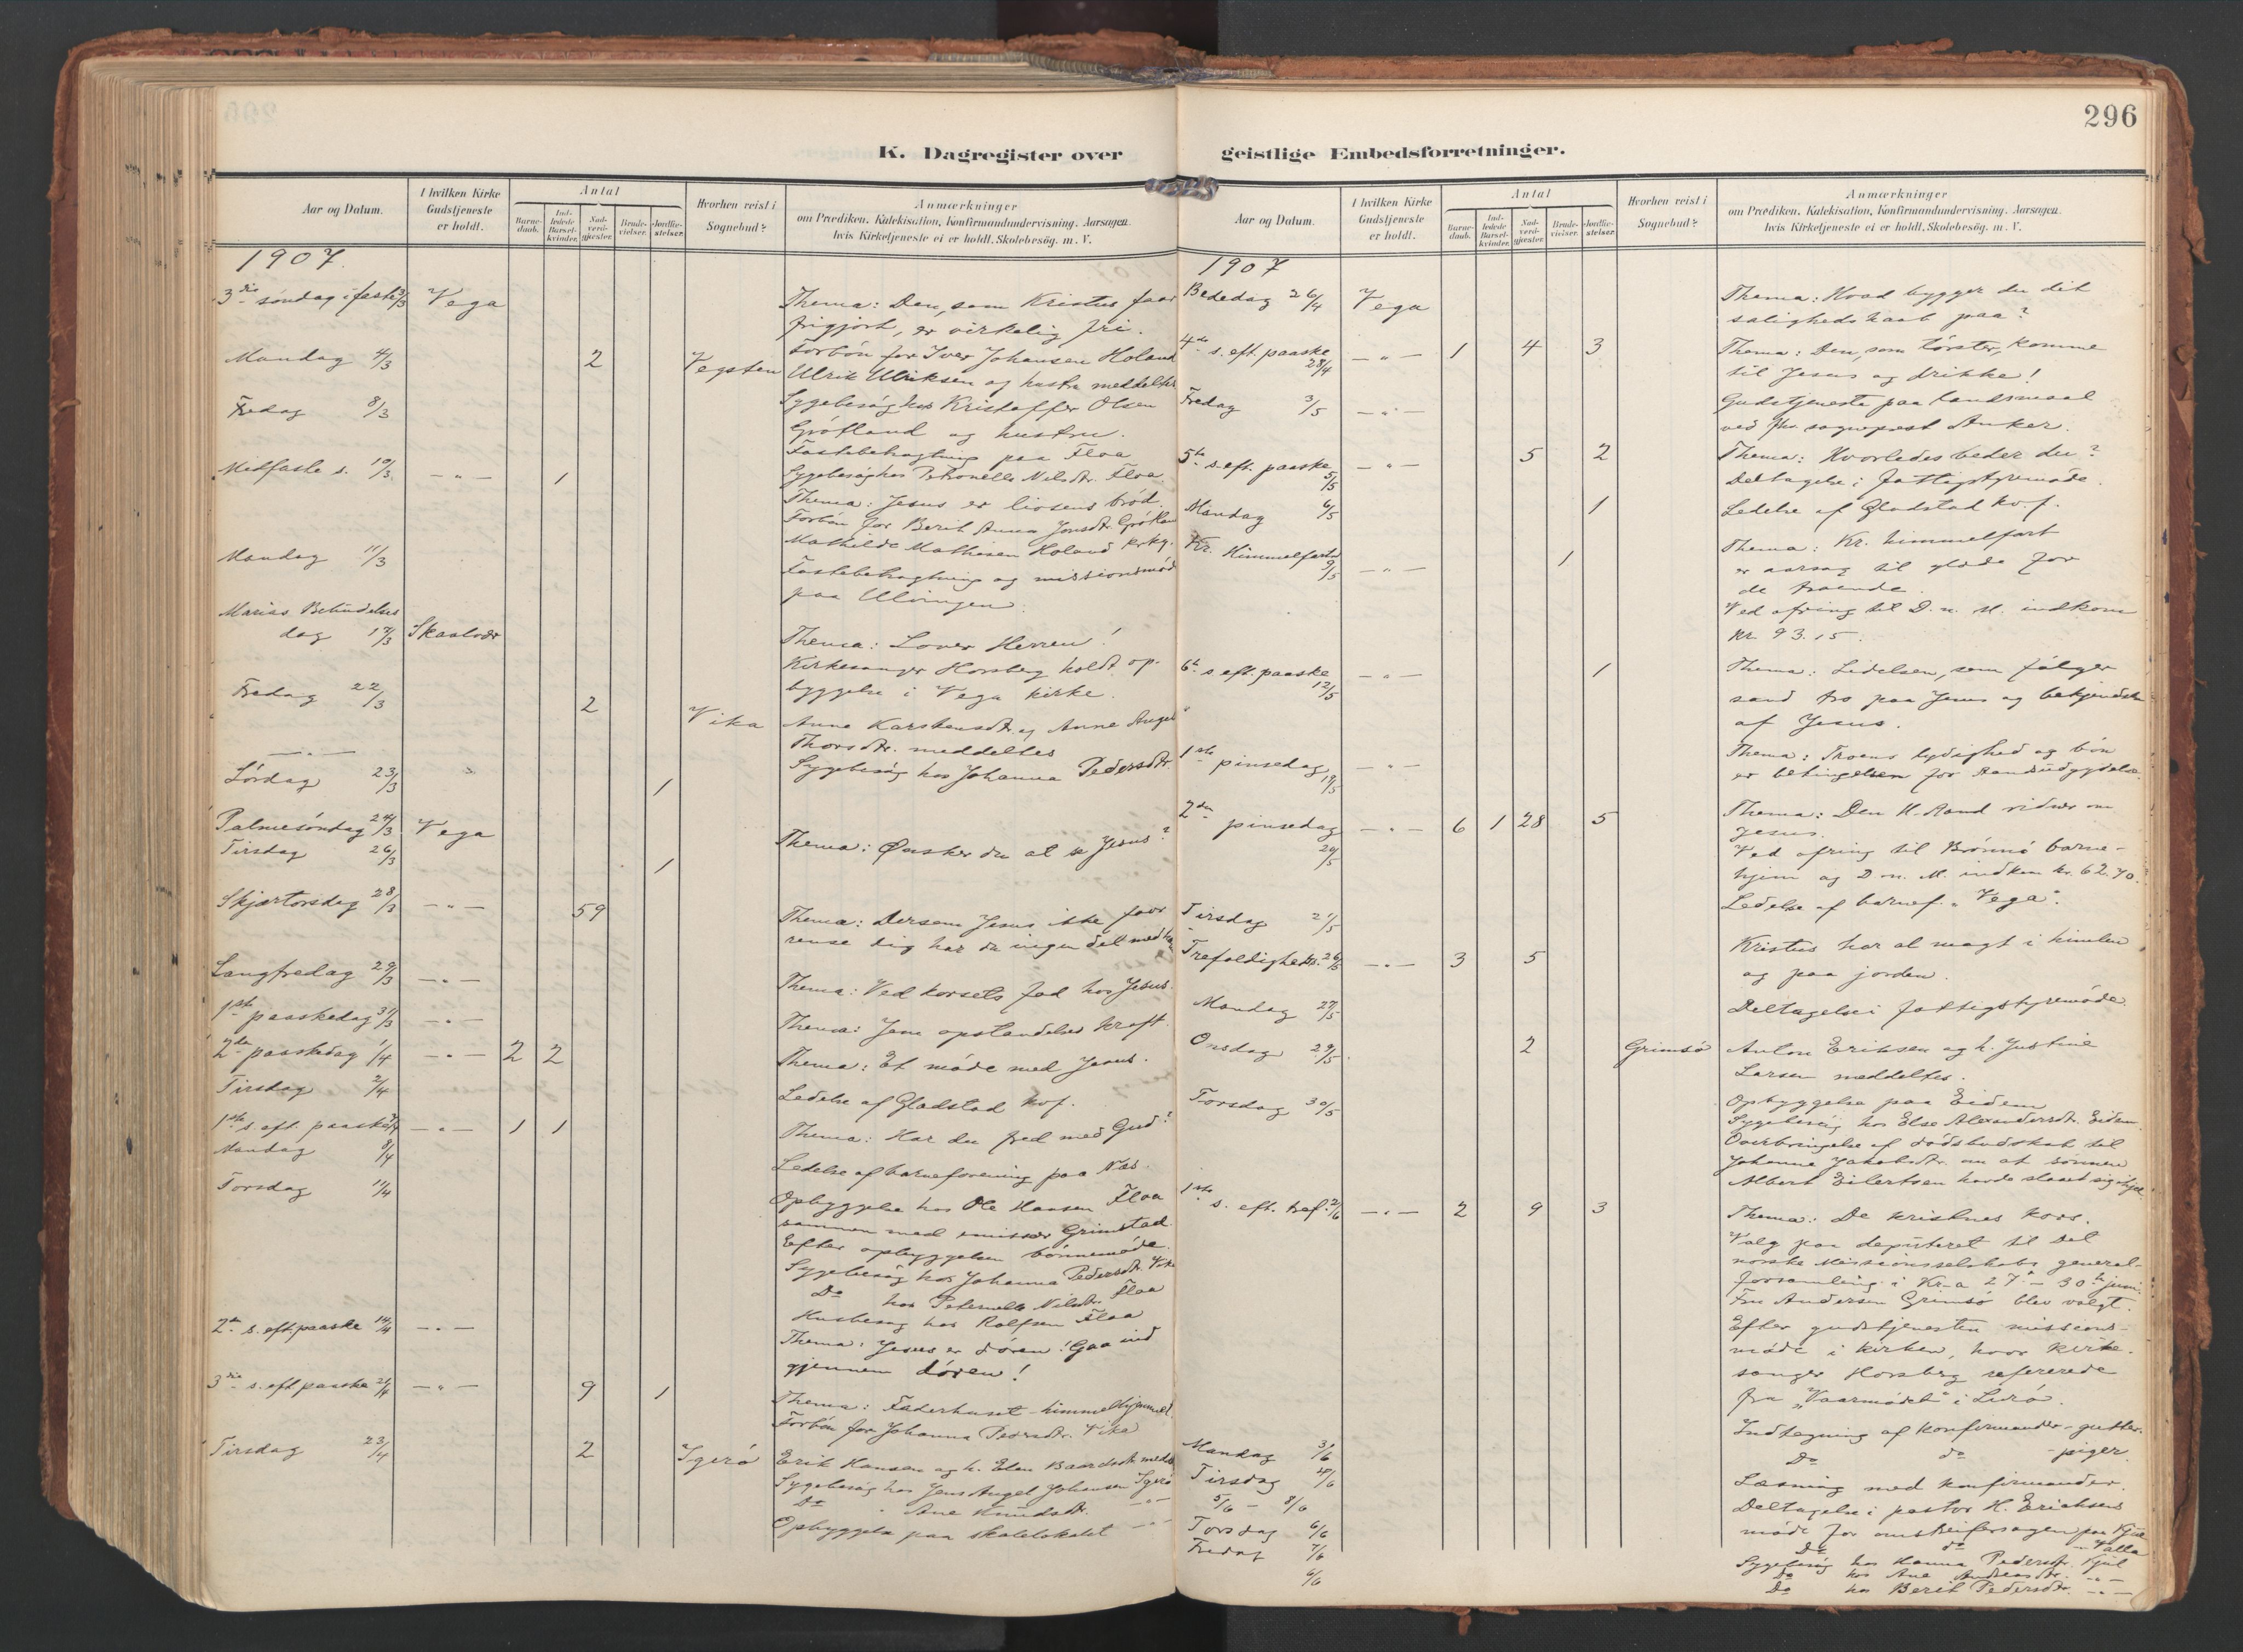 296
K. Dagregister over
geistlige Embedsforretninger.
Aar og Datum.
I hvilken Kirke
Gudstjeneste
er holdt.
Antal
Barne-
daab.
Ind-
ledede
Barsel-
kvinder.
Nad-
verd-
gjester.
Brude-
vielser.
Jordfæ-
stelser.
Hvorhen reist i
Sognebud?
Anmærkninger
om Prædiken. Katekisation, Konfirmandundervisning. Aarsagen.
hvis Kirketjeneste ei er holdt. Skolebesøg. m. V.
1907.
3die søndag i faste 3/3 Vega
Thema: Den, som Kristus faar
frigjort, er virkelig fri.
Forbøn for Iver Johansen Holand
Mandag 4/3 2 Vegsten Ulrik Ulriksen og hustru meddeltes
Fredag 8/3 Sygebesøg hos Kristoffer Olsen
Grøtland og hustru.
Fastebetragtning paa Floa
Sygebesøg hos Petronelle Nilsdtr. Floa.
Midfaste s. 10/3 — " — 1 Thema: Jesus er livsens brød.
Forbøn for Berit Anna Jonsdtr.
Mathilde Mathisen Holand
Mandag 11/3 Fastebetragtning og missionsmøde
paa Ulvingen.
Marias Bebudelses
dag 17/3 Skaalvær Thema: Lover Herren!
Kirkesanger Horsberg holdt op-
byggelse i Vega kirke.
Fredag 22/3 2 Vika Anne Karstensdtr. og Anne Angel
Thorsdtr. meddeltes
— " — Sygebesøg hos Johanna Pedersdtr.
Lørdag 23/3 1
Palmesøndag 24/3 Vega Thema: Ønsker du at se Jesus?
Tirsdag 26/3 1
Skjærtorsdag 28/3 — " — 59 Thema: Dersom Jesus ikke faar
rense dig har du ingen del med ham
Langfredag 29/3 — " — Thema: Ved korsets fod hos Jesus.
1ste paaskedag 31/3 — " — Thema: Jesu opstandelses kraft.
2den paaskedag 1/4 — " — 2 2 Thema: Et møde med Jesus.
Tirsdag 2/4 Ledelse af Gladstad kvf.
1ste s. eft. paaske 7/4 — " — 1 1 Thema: Har du fred med Gud?
Mandag 8/4 Ledelse af barneforening paa Næs.
Torsdag 11/4 Opbyggelse hos Ole Hansen Floa
sammen med emissær Grimstad.
Efter opbyggelsen bønnemøde.
Sygebesøg hos Johanna Pedersdtr. Vika
Do hos Petronelle Nilsdtr. Floa
Husbesøg hos Rolfsen Floa
2den s. eft. paaske 14/4 — " — Thema: Jesus er døren! Gaa ind
gjennem døren!
3die s. eft. paaske 21/4 — " — 9 1 Thema: Faderhuset - himmelhjemmet.
Forbøn for Johanna Pedersdtr. Vika
Tirsdag 23/4 2 Igerø Erik Hansen og h. Elen Baardsdtr. medd.
Sygebesøg hos Jens Angel Johansen Igerø
Do " Ane Knudsdtr. — " —
Opbyggelse paa skolelokalet — " —
Aar og Datum.
I hvilken Kirke
Gudstjeneste
er holdt.
Antal
Barne-
daab.
Ind-
ledede
Barsel-
kvinder.
Nad-
verd-
gjester.
Brude-
vielser.
Jordfæ-
stelser.
Hvorhen reist i
Sognebud?
Anmærkninger
om Prædiken. Katekisation, Konfirmandundervisning. Aarsagen.
hvis Kirketjeneste ei er holdt. Skolebesøg. m. V.
1907
Bededag 26/4 Vega Thema: Hvad bygger du dit
saligheds haab paa?
4de s. eft. paaske 28/4 — " — 1 4 3 Thema: Den, som tørster, komme
til Jesus og drikke!
Fredag 3/5 — " — Gudstjeneste paa landsmaal
ved sogneprest Anker.
5te s. eft. paaske 5/5 — " — 5 2 Thema: Hvorledes beder du?
Deltagelse i fattigstyremøde.
Mandag 6/5 1 Ledelse af Gladstad kv.f.
Kr. Himmelfartsd. 9/5 — " — 1 Thema: Kr. himmelfart
er aarsag til glæde for
de troende.
Ved ofring til D. n. M. indkom
kr. 93.15.
6te s. eft. paaske 12/5 — " — 1 Thema: Lidelsen, som følger
sand tro paa Jesus og bekjendelse
af Jesus.
1ste pinsedag 19/5 — " — Thema: Troens lydighed og bøn
er betingelsen for Aandsudgydelse.
2den pinsedag 20/5 — " — 6 1 28 5 Thema: Den H. Aand vidner om
Jesus.
Ved ofring til Brønnø barne-
hjem og D. n. M. indkom kr. 62.70.
Tirsdag 21/5 Ledelse af barnef. "Vega".
Trefoldigheds. 26/5 — " — 3 5 Kristus har al magt i himlen
og paa jorden.
Mandag 27/5 Deltagelse i fattigstyremøde.
Onsdag 29/5 2 Grimsø Anton Eriksen og h. Justine
Larsen meddeltes.
Torsdag 30/5 Opbyggelse paa Eidem
Sygebesøg hos Else Alexandersdtr. Eidem.
Overbringelse af dødsbudskab til
Johanna Jakobsdtr. om at sønnen
Albert Eilertsen havde slaaet sig ihjel.
1ste s. eft. tref. 2/6 — " — 2 9 3 Thema: De kristnes kors.
Valg paa deputeret til Det
norske Missionsselskabs general-
forsamling i Kr-a 27de - 30te juni.
Fru Andersen Grimsø blev valgt.
Efter gudstjenesten missions-
møde i kirken, hvor kirke-
sanger Horsberg refererede
fra "Vaarmødet" i Lurø.
Mandag 3/6 Indtegning af konfirmander - gutter.
Tirsdag 4/6 Do do - piger.
5/6 - 8/6 Læsning med konfirmander.
Torsdag 6/6 Deltagelse i pastor H. Erichsens
møde for omstreifersagen paa Kjul
Fredag 7/6 Do do - Valla
6/6 Sygebesøg hos Hanna Pedersdtr. Kjul
Do hos Ane Andreasdtr. — " —
Do hos Berit Pedersdtr. — " —